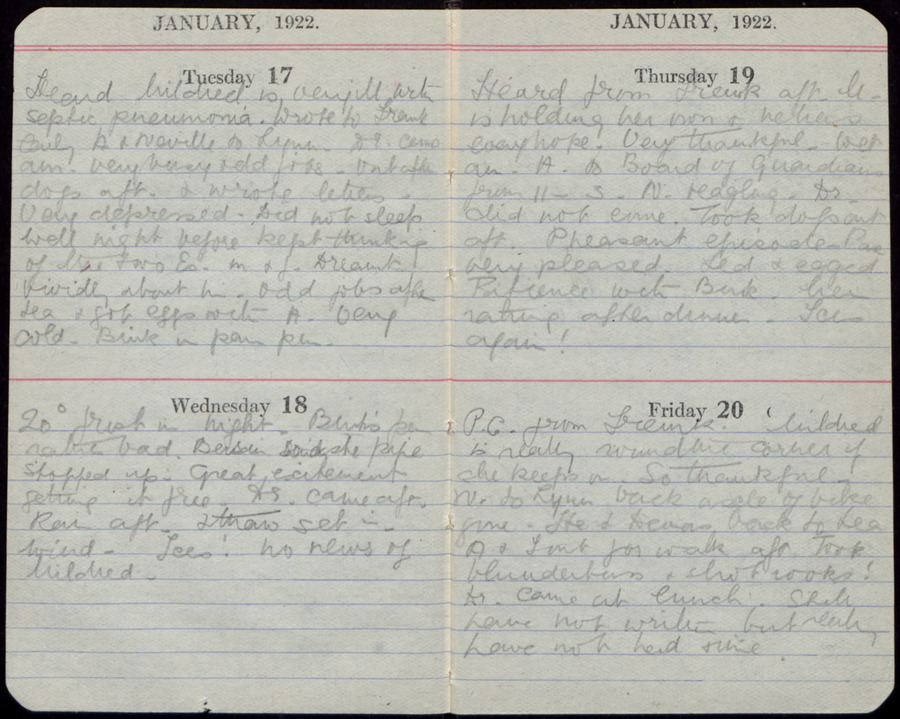 JANUARY, 1922.
Tuesday 17
Heard Mildred is very ill with
septic pneumonia. Wrote to Frank
early. A & Neville to Lynn. Dr. came
am. very busy odd jobs. Out after
dogs aft. & wrote letters.
Very depressed. Did not sleep
well night before kept thinking
of Two Es. m & J. Dreamt
about odd jobs after
tea & got eggs with A. Very
cold. Bink in pen.
Wednesday 18
20° frost in night. Bink's pen
rather bad. pipe
stopped up. Great excitement
getting it free. Dr. came aft.
Rain aft. & thaw set in.
wind - Ices! No news of
Mildred.
JANUARY, 1922.
Thursday 19
Heard from Frank aft. M.
is holding her own &
every hope. Very thankful. Wet
am. A. to Board of Guardians
from 11 - 3. N. Dr.
did not come. Took dogs out
aft. Pheasant episode
very pleased. Fed & egged
Patience with Bink.
after dinner. Ices
again!
Friday 20
P.C. from Frank. Mildred
is really round the corner if
she keeps on. So thankful.
N. to Lynn back axle of bike
gone. He & back to tea
A & I out for walk aft. Took
blunderbuss & shot rooks!
Dr. came at lunch. Still
have not written but really
have not had time